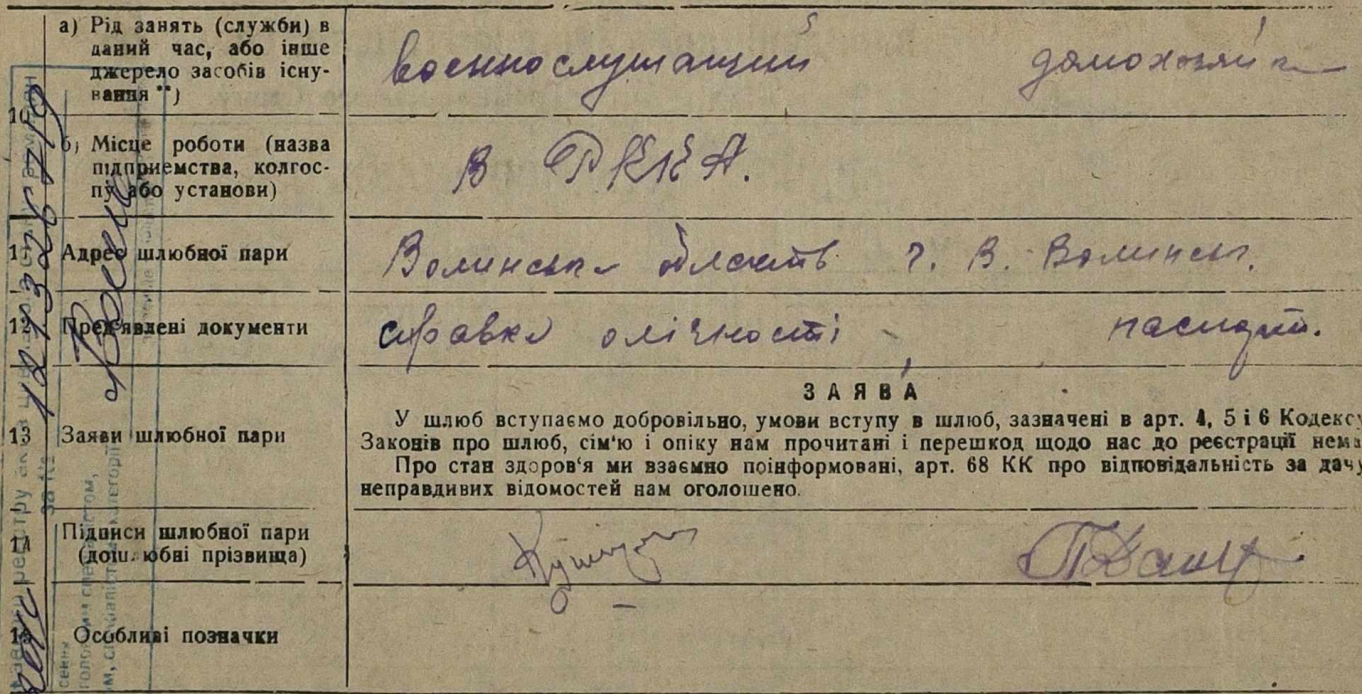 а) Рід занять (служби) в
даний час, або інше
джерело засобів існу-
вання **)
военнослужащий домохозяйка
10
б) Місце роботи (назва
підприємства, колгос-
пу або установи)
В РККА.
11 Адрес шлюбної пари
Волинська область г. В. Волинськ.
12 Пред'явлені документи
справка о лічності паспорт.
ЗАЯВА
У шлюб вступаємо добровільно, умови вступу в шлюб, зазначені в арт. 4, 5 і 6 Кодексу
13 Заяви шлюбної пари
Законів про шлюб, сім'ю і опіку нам прочитані і перешкод щодо нас до реєстрації нема
Про стан здоров'я ми взаємно поінформовані, арт. 68 КК про відповідальність за дачу
неправдивих відомостей нам оголошено.
14 Підписи шлюбної пари
(дошлюбні прізвища)
15 Особливі позначки